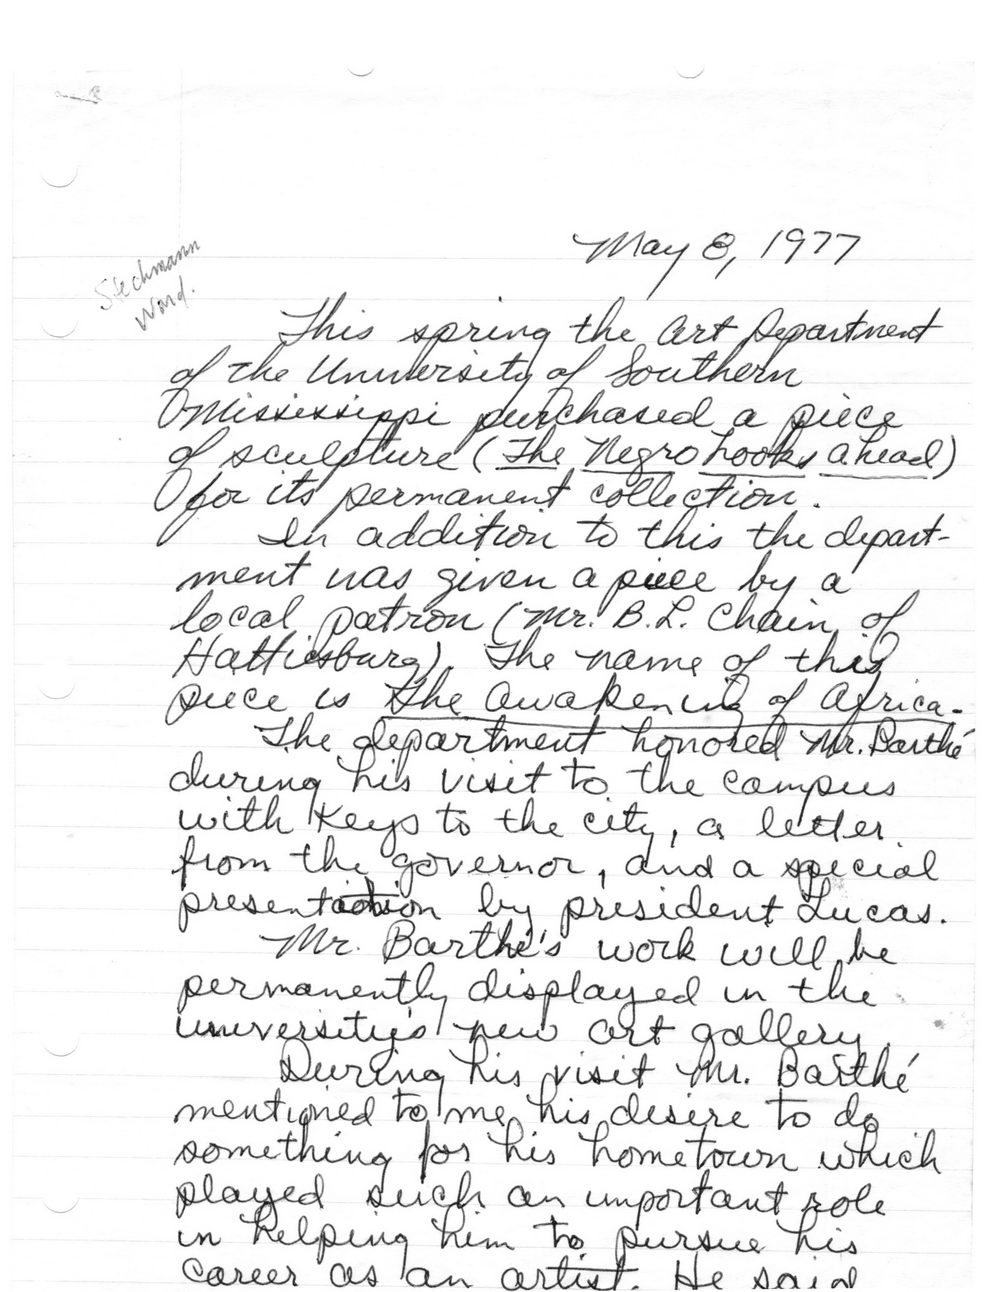 May 8, 1977
Stechmann
Word.
This spring the Art Department
of the University of Southern
Mississippi purchased a piece
of sculpture (The Negro Looks Ahead)
for its permanent collection.
In addition to this the depart-
ment was given a piece by a
local patron (Mr. B.L. Chain of
Hattiesburg). The name of this
piece is The Awakening of Africa.
The department honored Mr. Barthé
during his visit to the campus
with Keys to the city, a letter
from the governor, and a special
presentation by president Lucas.
Mr. Barthé's work will be
permanently displayed in the
university's new art gallery.
During his visit Mr. Barthé
mentioned to me his desire to do
something for his hometown which
played such an important role
in helping him to pursue his
career as an artist. He said